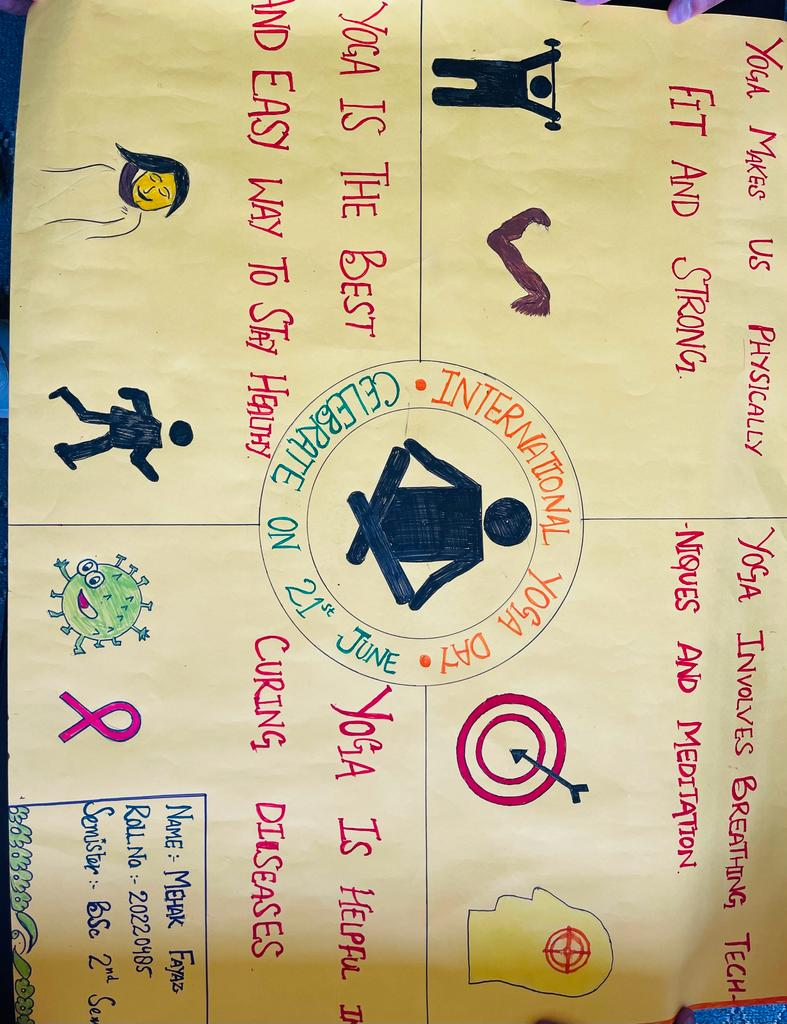 YOGA MAKES US PHYSICALLY
FIT AND STRONG.
YOGA INVOLVES BREATHING TECH-
-NIQUES AND MEDITATION.
• INTERNATIONAL YOGA DAY •
CELEBRATE ON 21st JUNE
YOGA IS THE BEST
AND EASY WAY TO STAY HEALTHY.
YOGA IS HELPFUL IN
CURING DISEASES
NAME:- MEHAK FAYAZ
ROLL.No :- 20220485
Semister:- BSc 2nd Sem